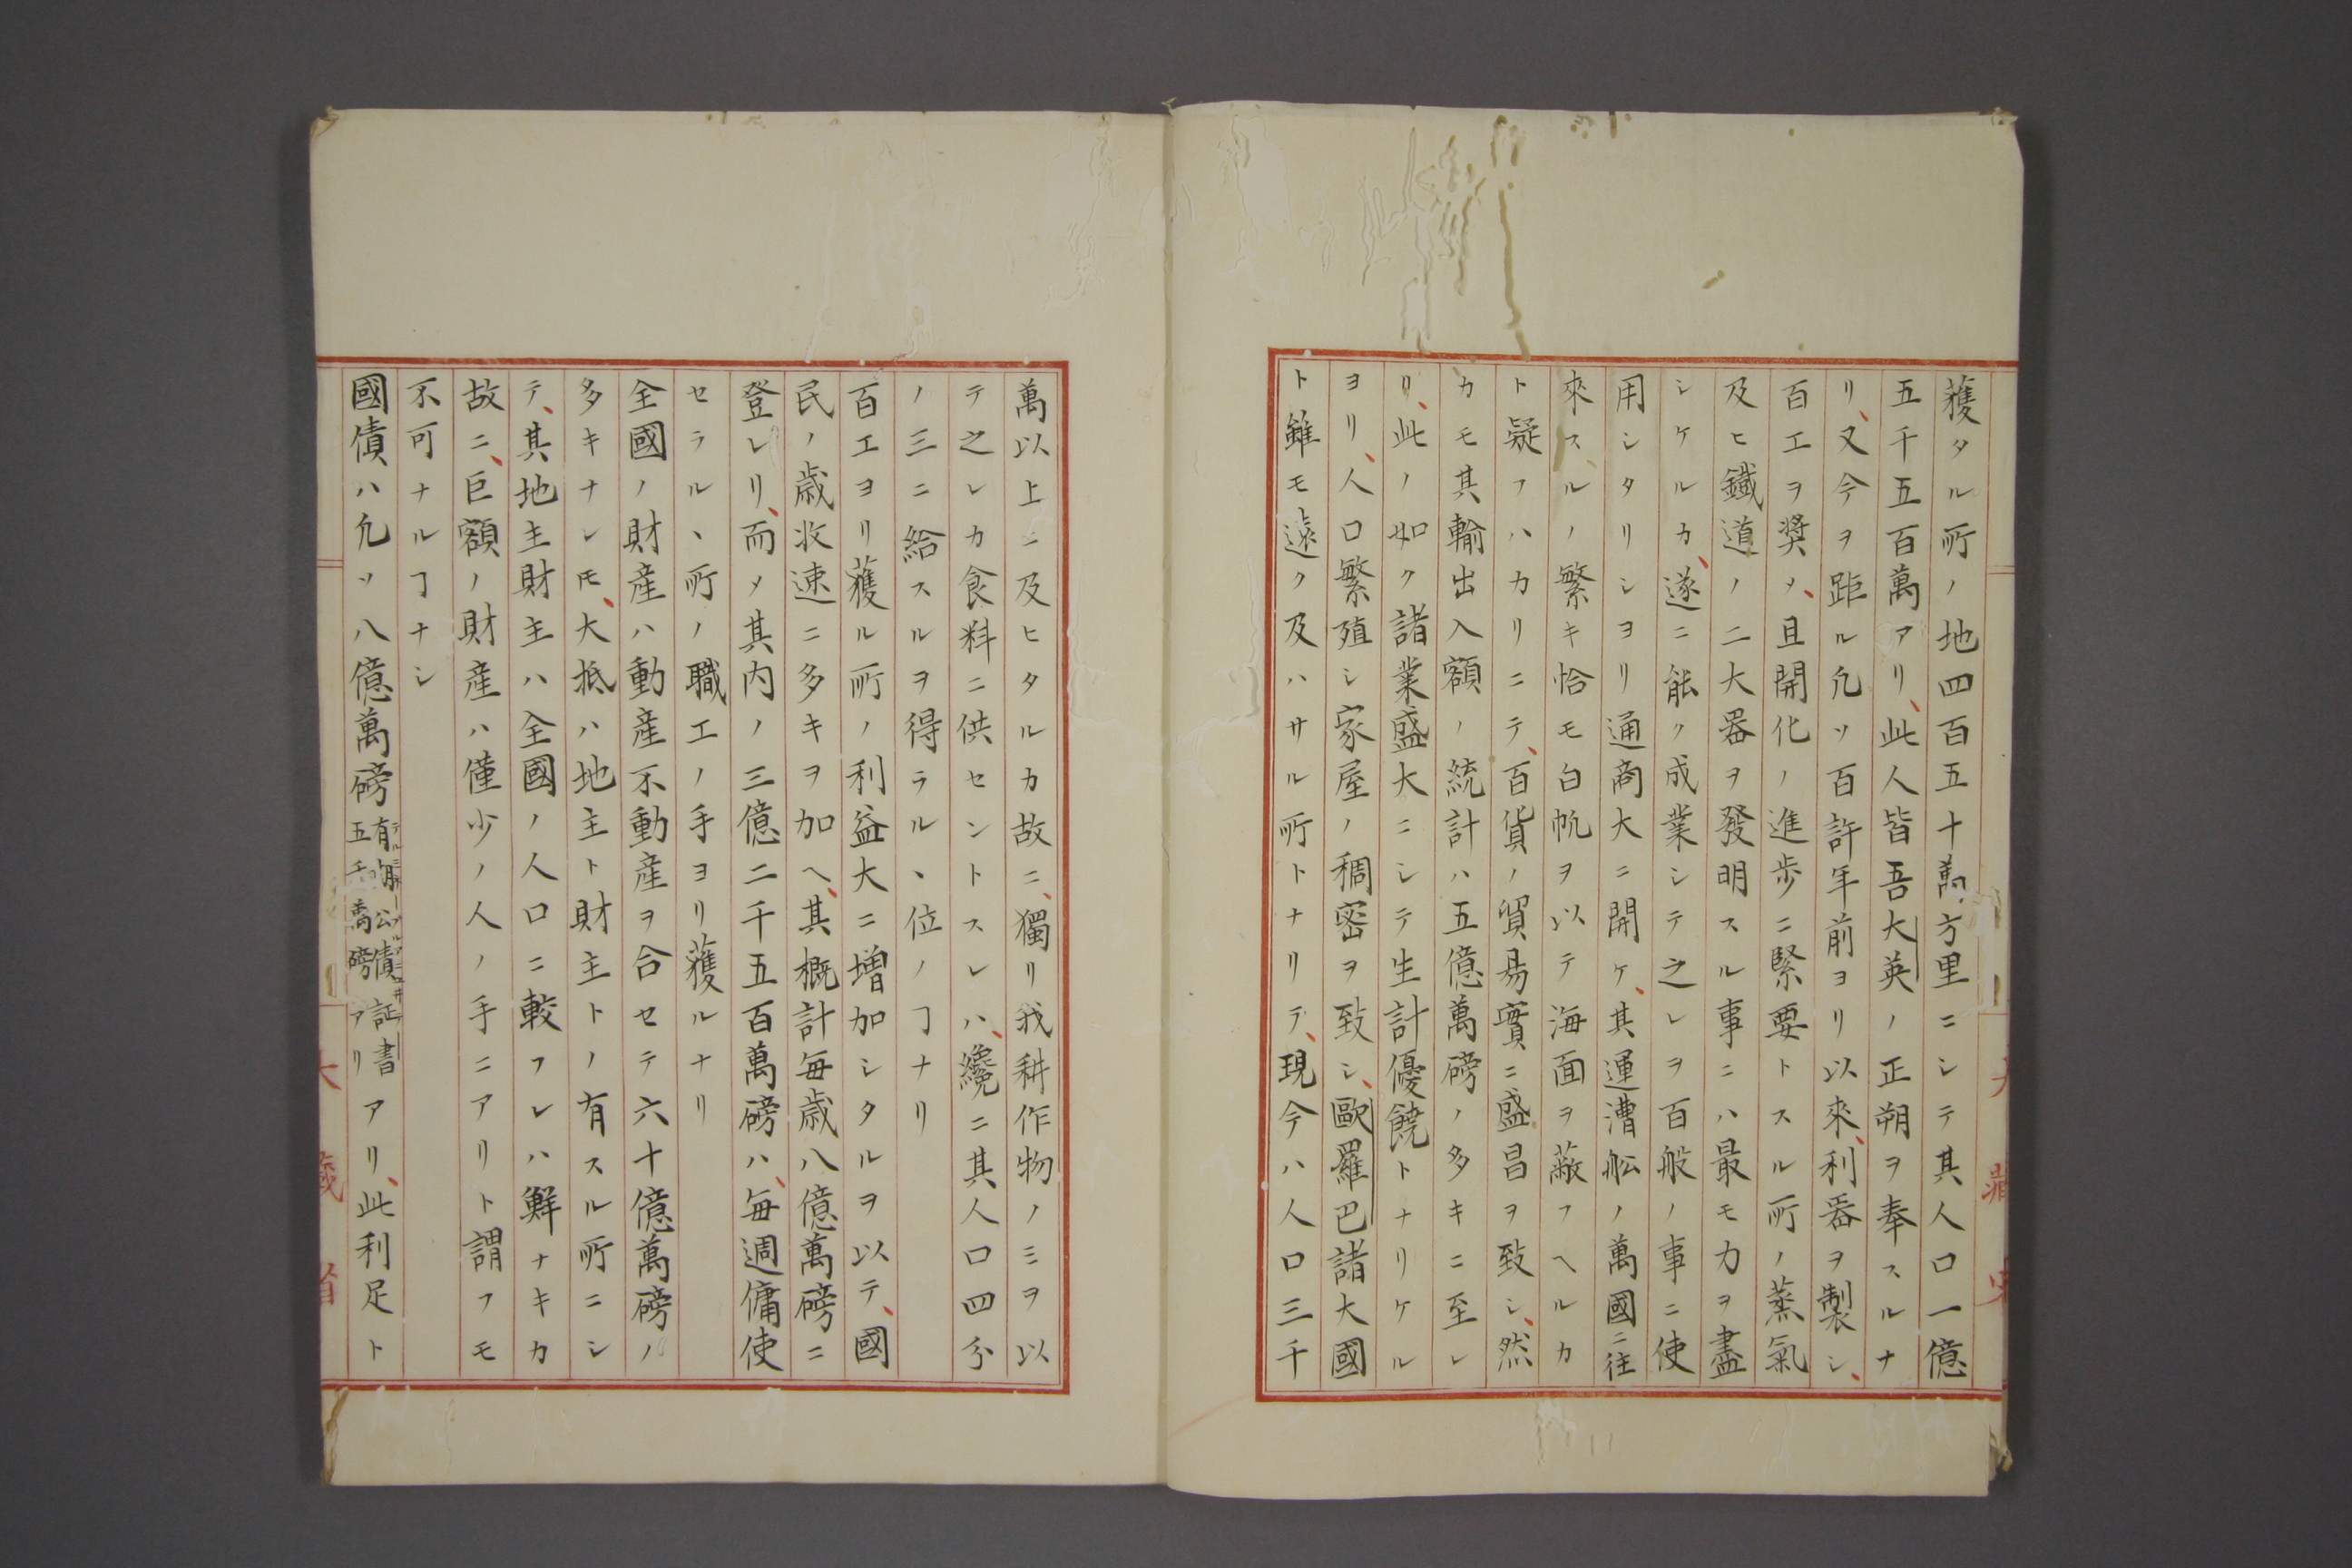 獲タル所ノ地四百五十萬方里ニシテ其人口一億
五千五百萬アリ、此人皆吾大英ノ正朔ヲ奉スルナ
リ、又今ヲ距ル凢ソ百許年前ヨリ以來、利器ヲ製シ、
百工ヲ奬メ、且開化ノ進歩ニ緊要トスル所ノ蒸氣
及ヒ鐵道ノ二大器ヲ發明スル事ニハ最モ力ヲ盡
シケルカ、遂ニ能ク成業シテ之レヲ百般ノ事ニ使
用シタリシヨリ通商大ニ開ケ、其運漕舩ノ萬國ニ往
來スルノ繁キ恰モ白帆ヲ以テ海面ヲ蔽フヘルカ
ト疑フハカリニテ、百貨ノ貿易實ニ盛昌ヲ致シ、然
カモ其輸出入額ノ統計ハ五億萬磅ノ多キニ至レ
リ、此ノ如ク諸業盛大ニシテ生計優饒トナリケル
ヨリ、人口繁殖シ家屋ノ稠密ヲ致シ、歐羅巴諸大國
ト雖モ遠ク及ハサル所トナリテ、現今ハ人口三千
萬以上ニ及ヒタルカ故ニ、獨リ我耕作物ノミヲ以
テ之レカ食料ニ供セントスレハ、纔ニ其人口四分
ノ三ニ給スルヲ得ラル、位ノヿナリ
百工ヨリ獲ル所ノ利益大ニ増加シタルヲ以テ、國
民ノ歳收速ニ多キヲ加ヘ、其概計毎歳八億萬磅ニ
登レリ、而メ其内ノ三億二千五百萬磅ハ、毎週傭使
セラル、所ノ職工ノ手ヨリ獲ルナリ
全國ノ財産ハ動産不動産ヲ合セテ六十億萬磅ノ
多キナレ𪜈、大抵ハ地主ト財主トノ有スル所ニシ
テ、其地主財主ハ全國ノ人口ニ較フレハ鮮ナキカ
故ニ、巨額ノ財産ハ僅少ノ人ノ手ニアリト謂フモ
不可ナルヿナシ
國債ハ凢ソ八億萬磅有期公債証書五千萬磅アリアリ、此利足ト
大藏省